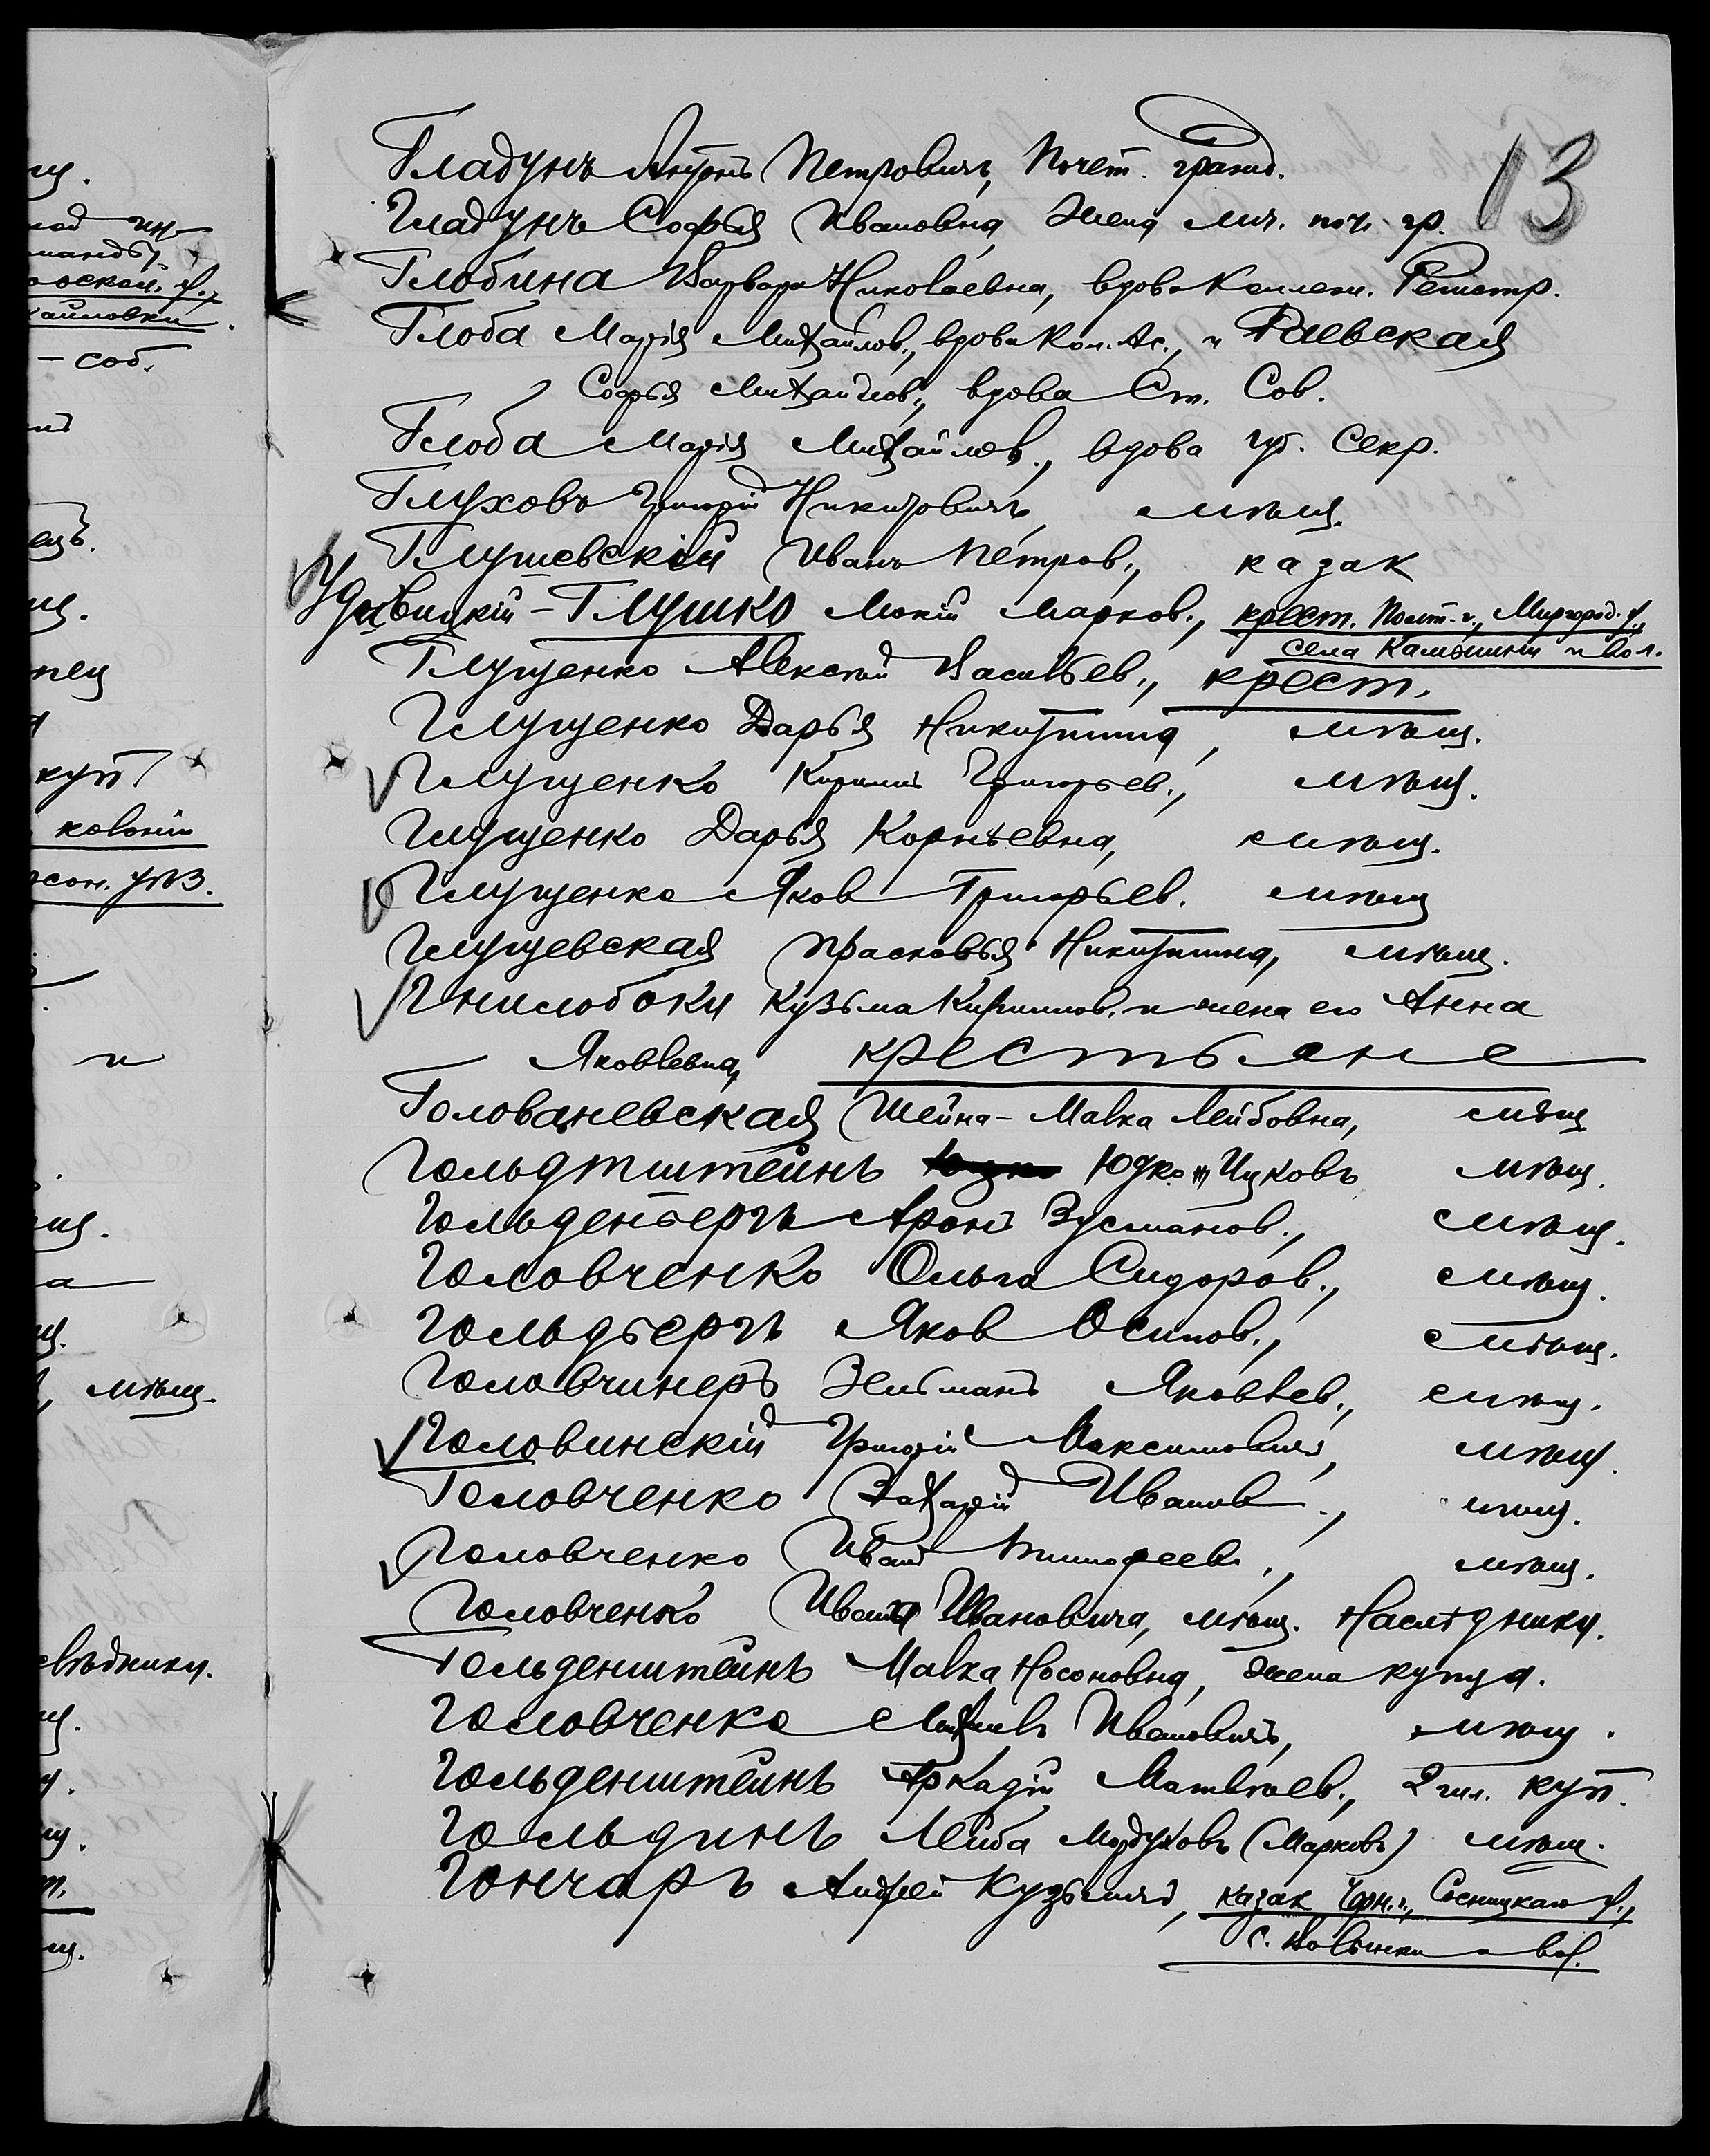 13
Гладунъ Антонъ Петровичъ, Почет. гражд.
Гладунъ Софья Ивановна, жена лич. поч. гр.
Глобина Варвара Николаевна, вдова Коллеж. Регистр.
Глоба Марія Михайлов., вдова Кол. Ас., и Раевская
Софья Михайлов., вдова Ст. Сов.
Глоба Марія Михайлов., вдова губ. Секр.
Глуховъ Григорій Никитовичъ, мѣщ.
Глушевскій Иванъ Петров., казак
Глушко Мокій Марков., крест. Полт. г., Миргород. у.,
села и вол.
Глущенко Алексѣй Васильев., крест.
Глущенко Дарья Никитишна, мѣщ.
Глущенко Кирилъ Григорьев., мѣщ.
Глущенко Дарья Корнѣевна, мѣщ.
Глущенко Яков Григорьев. мѣщ
Глущевская Прасковья Никитишна, мѣщ.
Гнилобоки Кузьма Кирилов. и жена его Анна
Яковлевна, крестьяне
Голованевская Шейна-Малка Лейбовна, мѣщ
Гольдтштейнъ Юдко Ицковъ мѣщ.
Гольденбергъ Аронъ Зусманов., мѣщ.
Головченко Ольга Сидоров., мѣщ.
Гольдбергъ Яков Осипов., мѣщ.
Головчинеръ Зельманъ Яковлев., мѣщ.
Головинскій Григорій Максимовичъ, мѣщ.
Головченко Захарій Иванов., мѣщ.
Головченко Иванъ Тимофеев., мѣщ.
Головченко Ивана Ивановича, мѣщ. Наслѣдники.
Гольденштейнъ Малка Носоновна, жена купца.
Головченко Михаилъ Ивановичъ, мѣщ.
Гольденштейнъ Аркадій Матвѣев., 2 гил. куп.
Гольдинъ Лейба Мордуховъ (Марковъ) мѣщ.
Гончаръ Андрей Кузьмичъ, казак Черн. г., Сосницкаго у.,
с. и вол.